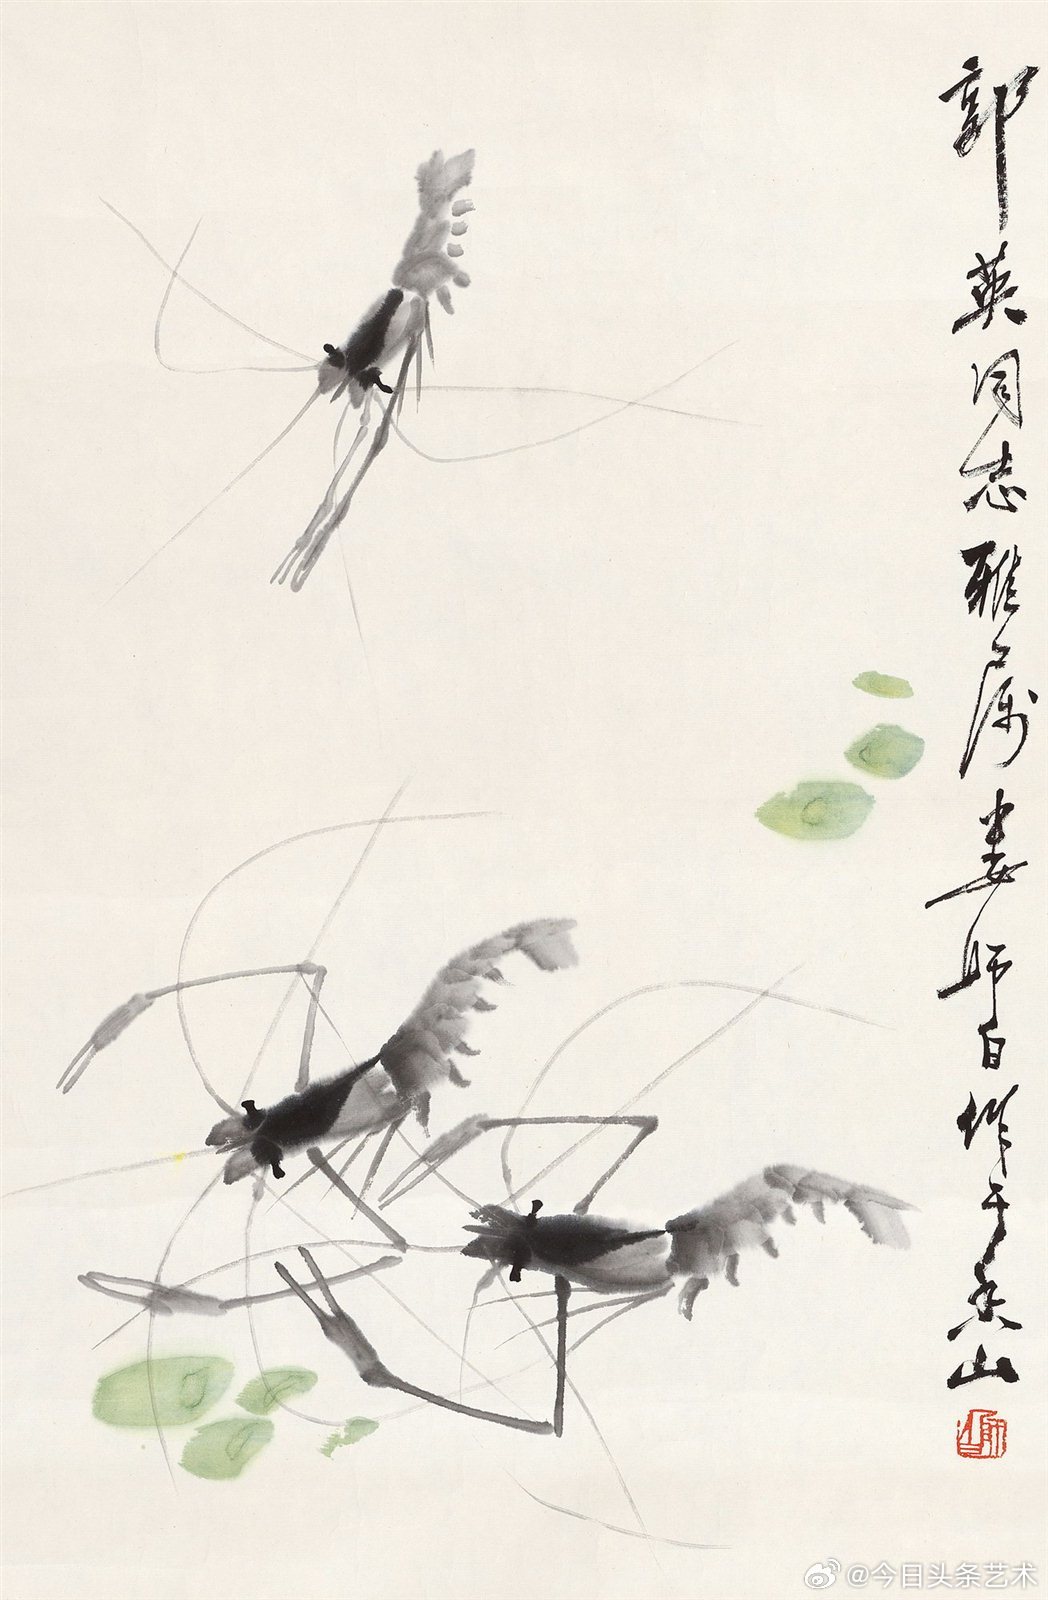 郭英同志雅属娄师白作于香山
师白
@今日头条艺术